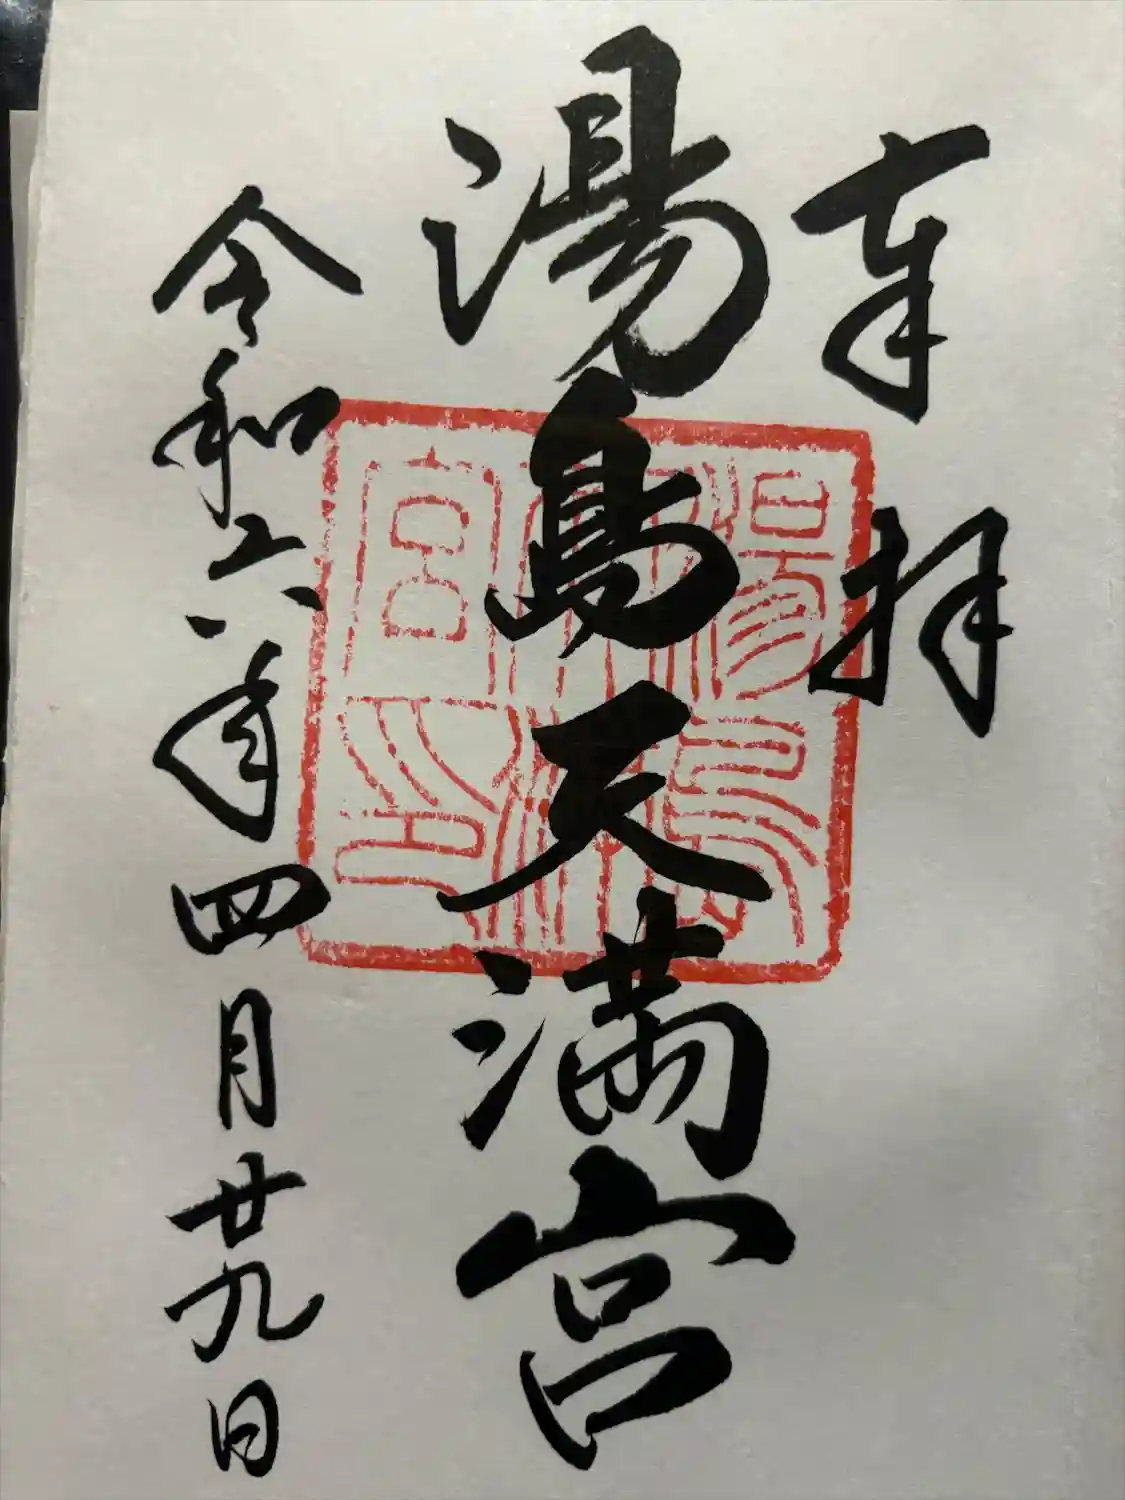 奉拝
湯島天満宮
令和六年四月廿九日
湯島神社宮印